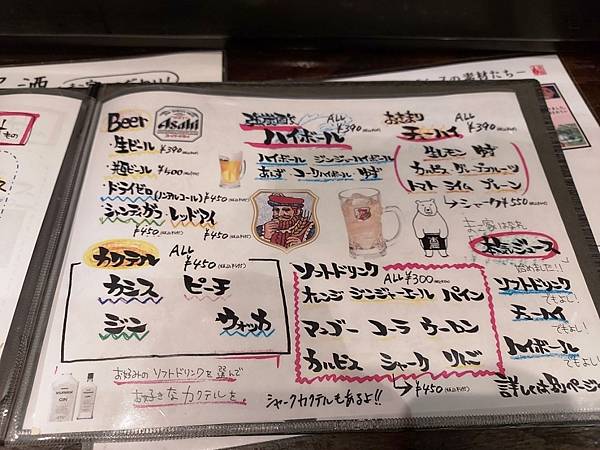 Beer
Asahi
・生ビール ¥390
・瓶ビール ¥400
・ドライゼロ(ノンアルコール) ¥450
・シャンディガフ・レッドアイ
¥450 ¥450
ALL ¥390
ハイボール
ハイボール ジンジャーハイボール
コークハイボール
ALL ¥390
チューハイ
生レモン
カルピス グレープフルーツ
トマト ライム プレーン
→シャーク¥550
カクテル ALL ¥450
カシス ピーチ
ジン ウォッカ
お好みのソフトドリンクを選んで
お好きなカクテルを
シャークカクテルもあるよ!!
ソフトドリンク ALL ¥300
オレンジ ジンジャーエール パイン
マンゴー コーラ ウーロン
カルピス シャーク りんご
→¥450
ジュース
始めました!!
ソフトドリンク
でもよし!
チューハイ
でもよし!
ハイボール
でもよし!!
詳しくは別ページ
の素材たち